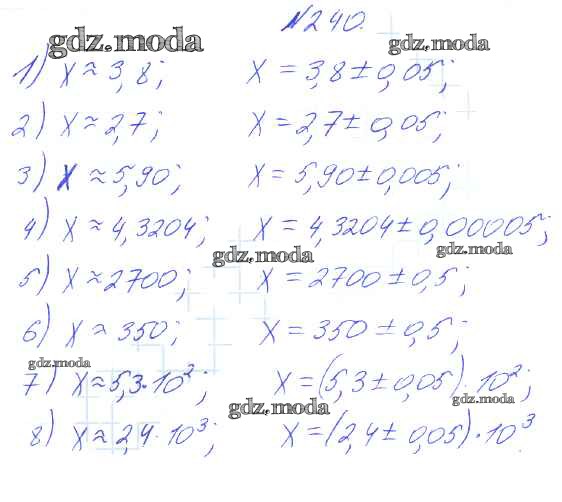 №240.
gdz.moda
gdz.moda
1) x ≈ 3,8; x = 3,8 ± 0,05;
2) x ≈ 2,7; x = 2,7 ± 0,05;
3) x ≈ 5,90; x = 5,90 ± 0,005;
4) x ≈ 4,3204; x = 4,3204 ± 0,00005;
gdz.moda
gdz.moda
5) x ≈ 2700; x = 2700 ± 0,5;
6) x ≈ 350; x = 350 ± 0,5;
gdz.moda
7) x ≈ 5,3·10²; x = (5,3 ± 0,05)·10²;
gdz.moda
gdz.moda
8) x ≈ 2,4·10³; x = (2,4 ± 0,05)·10³